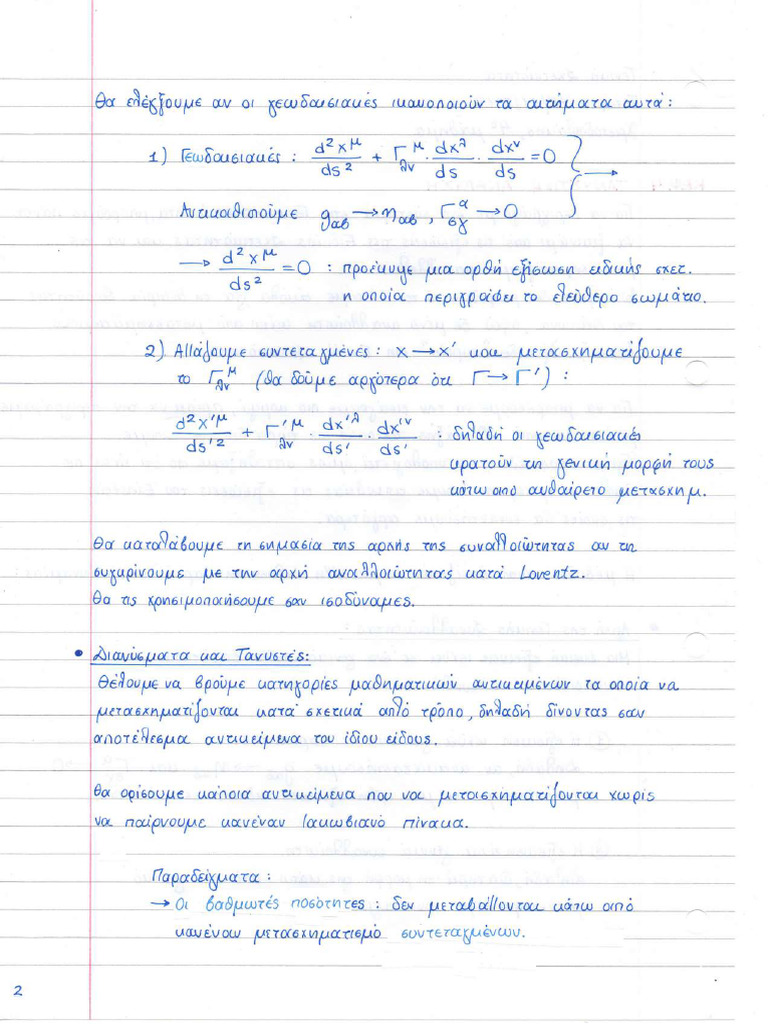 Θα ελέγξουμε αν οι γεωδαισιακές ικανοποιούν τα αιτήματα αυτά:
1) Γεωδαισιακές: d²x^μ/ds² + Γ^μ_λν · dx^λ/ds · dx^ν/ds = 0 } →
Αντικαθιστούμε g_αβ → η_αβ, Γ^α_σγ → 0
→ d²x^μ/ds² = 0 : προέκυψε μια ορθή εξίσωση ειδικής σχετ.
η οποία περιγράφει το ελεύθερο σωμάτιο.
2) Αλλάζουμε συντεταγμένες: x → x' και μετασχηματίζουμε
το Γ^μ_λν (θα δούμε αργότερα ότι Γ → Γ'):
d²x'^μ/ds'² + Γ'^μ_λν · dx'^λ/ds' · dx'^ν/ds' : δηλαδή οι γεωδαισιακές
κρατούν τη γενική μορφή τους
κάτω από αυθαίρετο μετασχημ.
Θα καταλάβουμε τη σημασία της αρχής της συναλλοιώτητας αν τη
συγκρίνουμε με την αρχή αναλλοιώτητας κατά Lorentz.
Θα τις χρησιμοποιήσουμε σαν ισοδύναμες.
• Διανύσματα και Τανυστές:
Θέλουμε να βρούμε κατηγορίες μαθηματικών αντικειμένων τα οποία να
μετασχηματίζονται κατά σχετικά απλό τρόπο, δηλαδή δίνοντας σαν
αποτέλεσμα αντικείμενα του ίδιου είδους.
Θα ορίσουμε κάποια αντικείμενα που να μετασχηματίζονται χωρίς
να παίρνουμε κανέναν Ιακωβιανό πίνακα.
Παραδείγματα:
→ Οι βαθμωτές ποσότητες: δεν μεταβάλλονται κάτω από
κανέναν μετασχηματισμό συντεταγμένων.
2